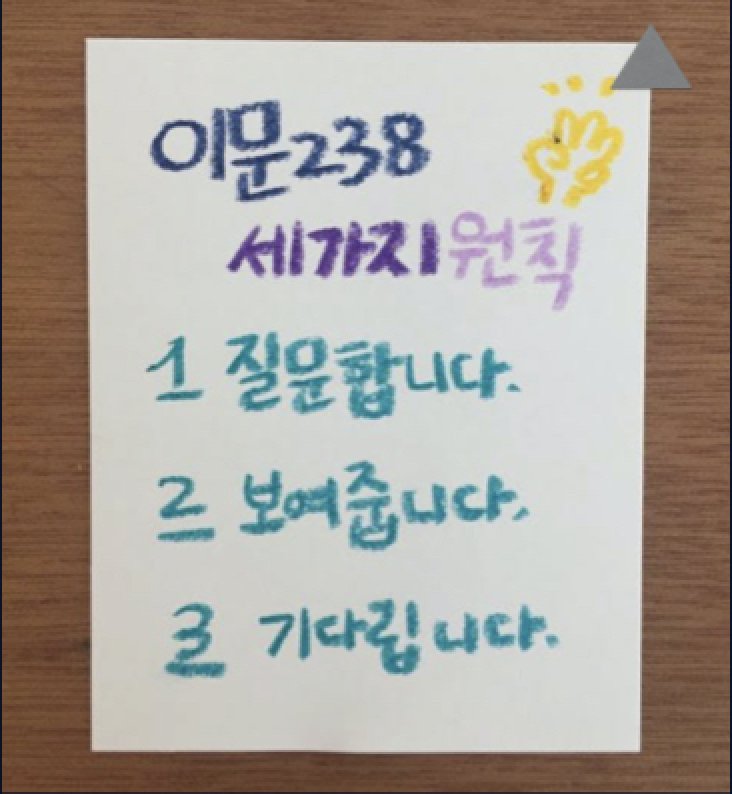 이문238
세가지 원칙
1 질문합니다.
2 보여줍니다.
3 기다립니다.